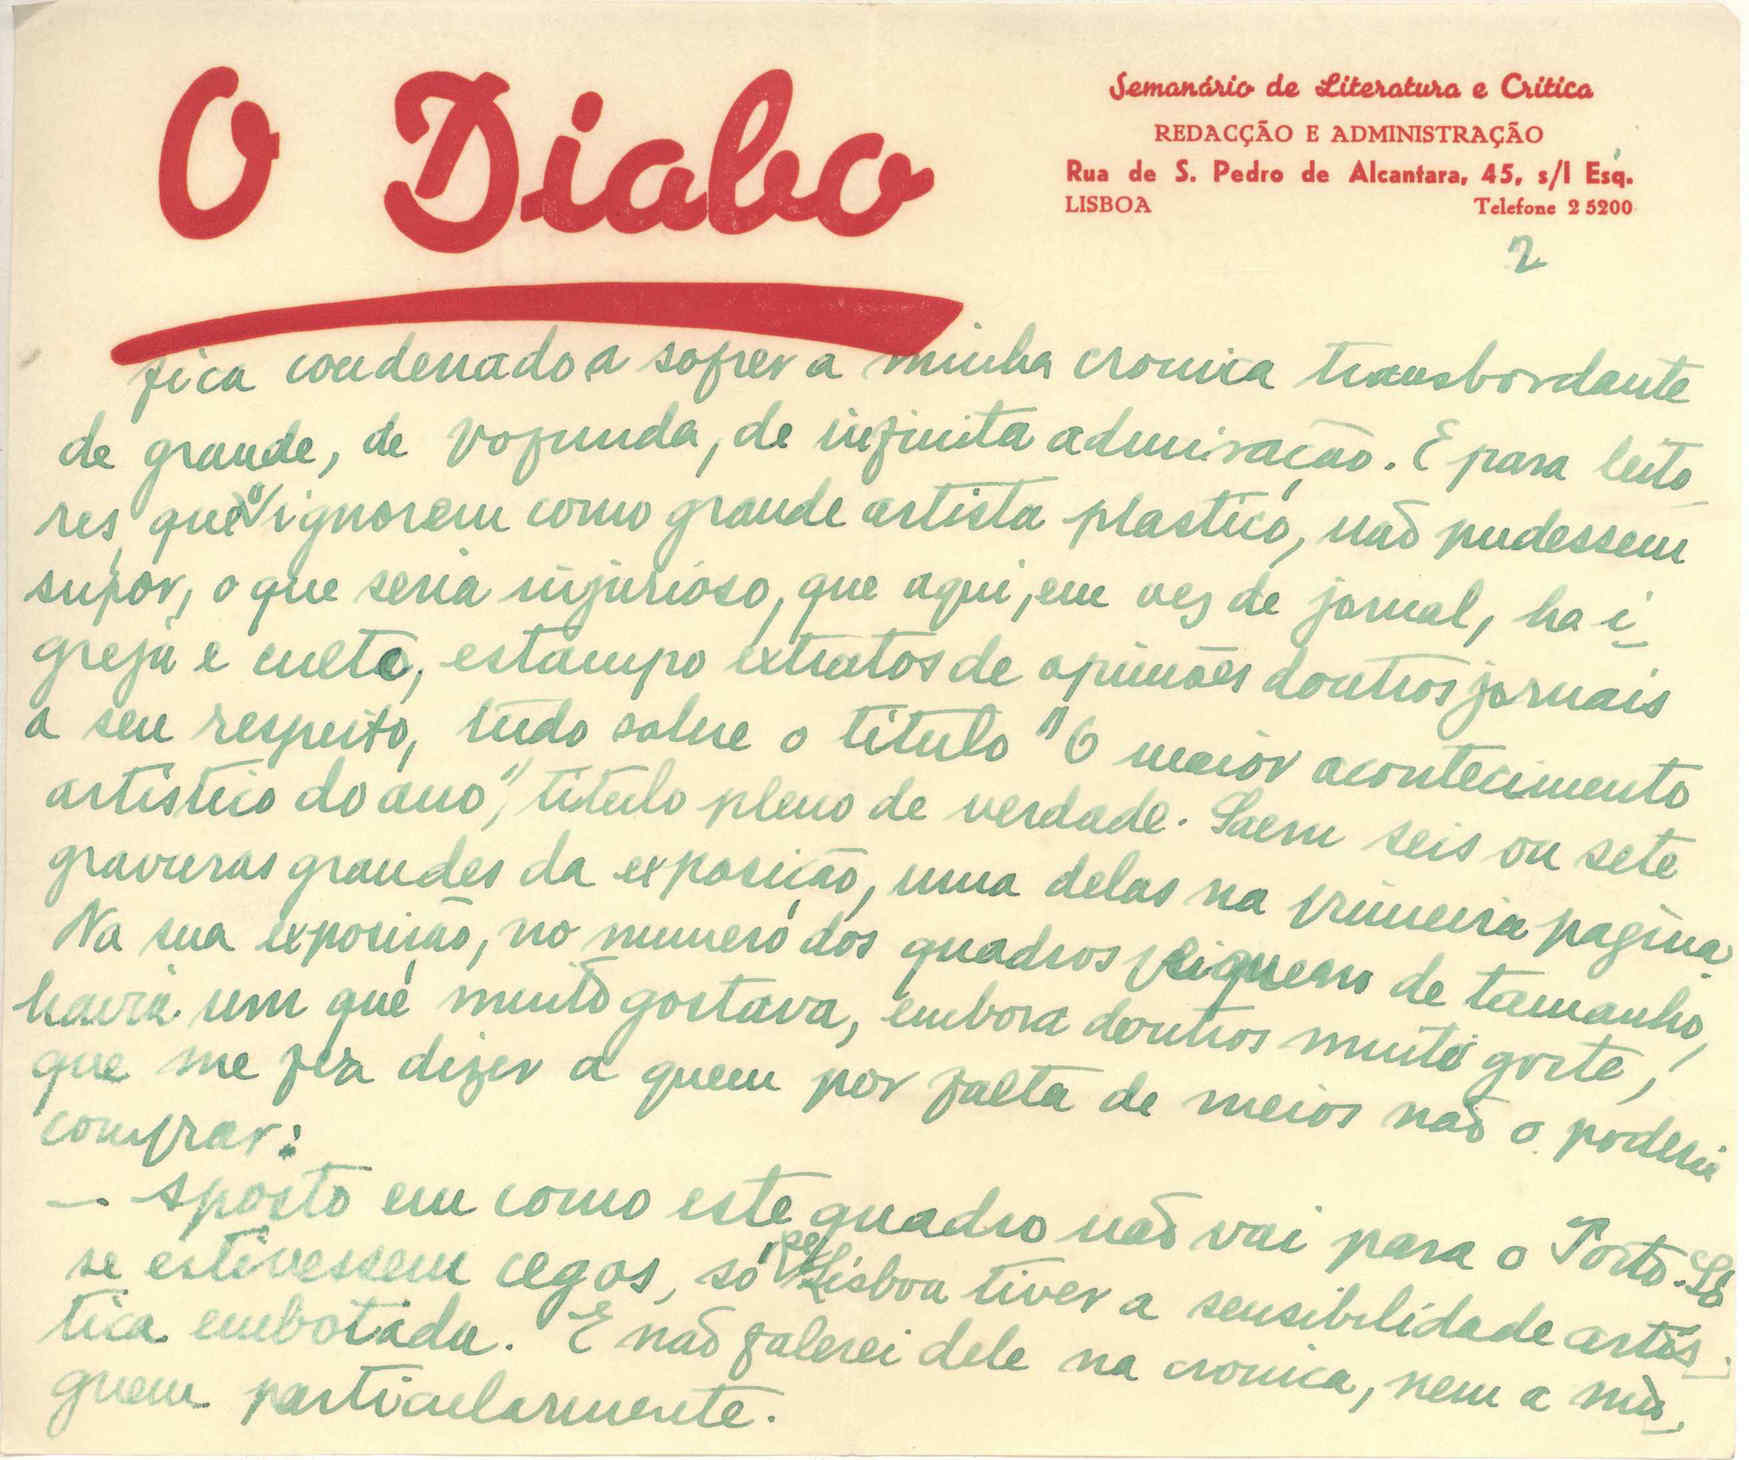 O Diabo
Semanário de Literatura e Crítica
REDACÇÃO E ADMINISTRAÇÃO
Rua de S. Pedro de Alcantara, 45, s/l Esq.
LISBOA Telefone 2 5200
2
fica condenado a sofrer a minha cronica transbordante
de grande, de vofunda, de infinita admiração. E para leito
res, que o ignorem como grande artista plastico, não pudessem
supor, o que seria injurioso, que aqui, em vez de jornal, ha i-
greja e culto, estampo extratos de opiniões doutros jornais
a seu respeito, tudo sobre o titulo "O maior acontecimento
artistico do ano", titulo pleno de verdade. Saem seis ou sete
gravuras grandes da exposição, uma delas na primeira pagina.
Na sua exposição, no numero dos quadros piqueno de tamanho,
havia um que muito gostava, embora doutros muito goste,
que me fez dizer a quem por falta de meios não o poderia
comprar:
— Aposto em como este quadro não vai para o Porto. Só
se estivessem cegos, só se Lisboa tiver a sensibilidade artis-
tica embotada. E não falerei dele na cronica, nem a nin-
guem particularmente.